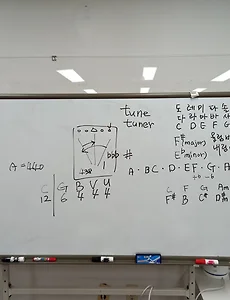 tune
tuner
도 레 미 파 솔
다 라 마 바 사
C D E F G
F#(major)
E♭(minor)
bbb #
438
A=440
A · B C · D · E F · G · A
C G B V U
12 6 4 4 4
C F G Am
F# B C# D#m